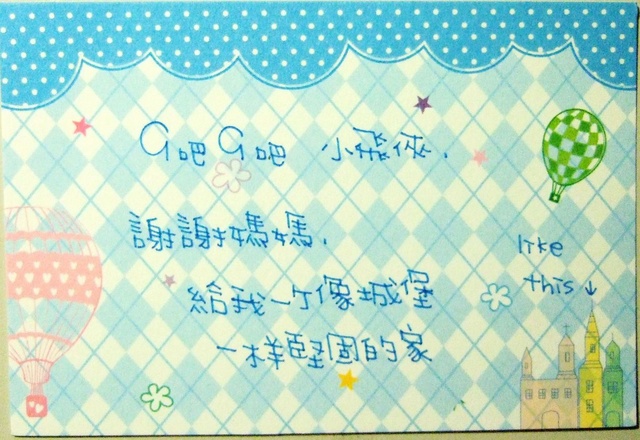 G吧G吧 小飛俠.
謝謝媽媽.
給我一个像城堡
一样堅固的家
like
this↓